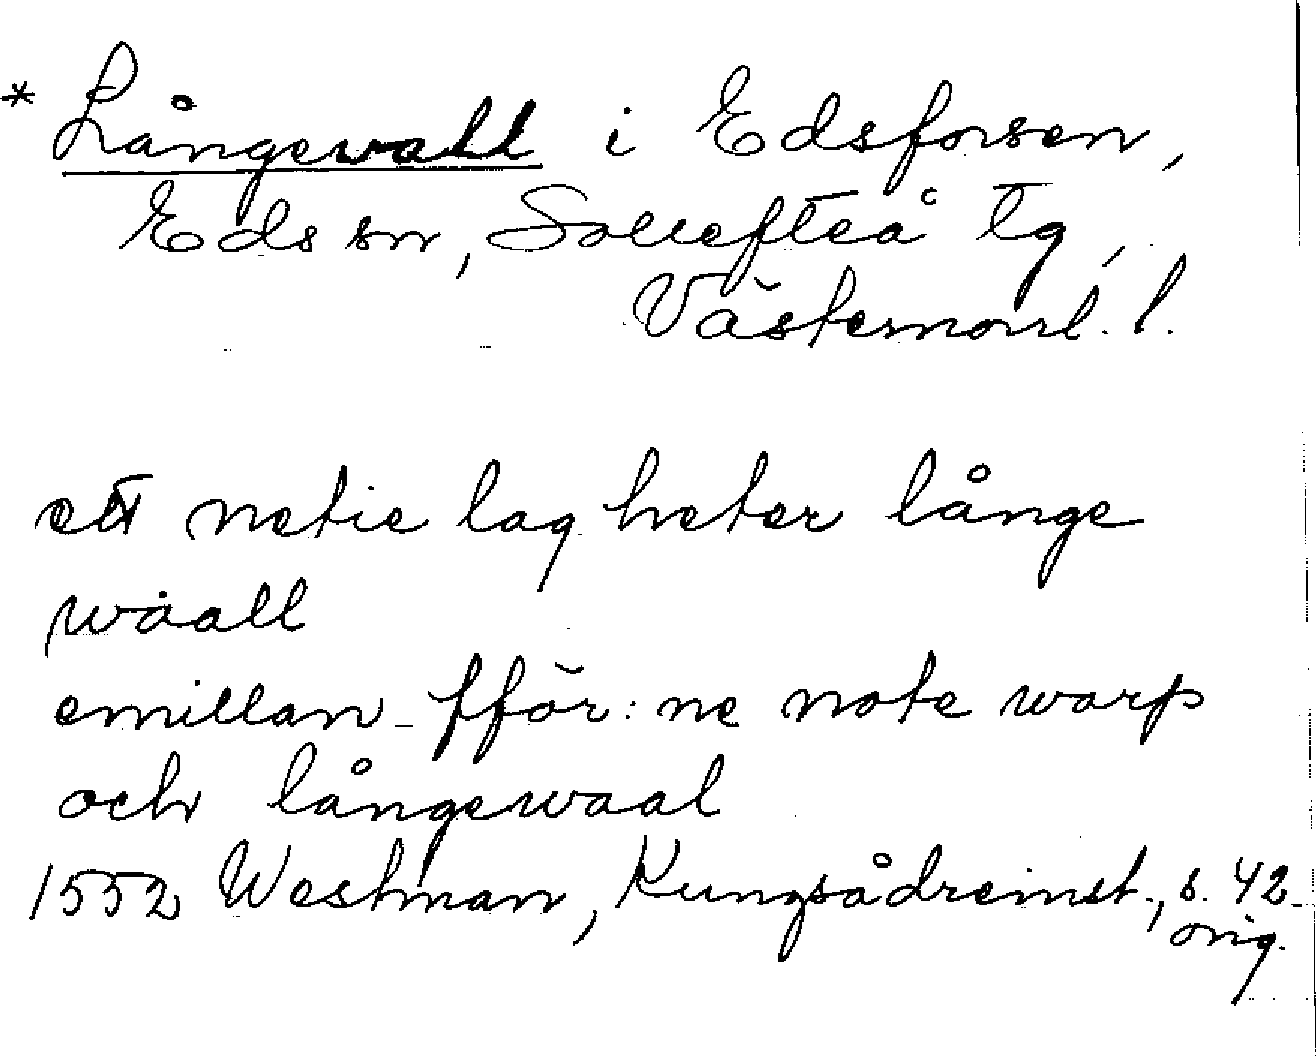 * Långevall i Edsforsen,
Eds sn, Sollefteå tg,
Västernorrl. l.
ett netie lag heter långe
waall
emillan fför: ne note warp
och långewaal
1552 Westman, Kungsådreinst., s. 42
orig.